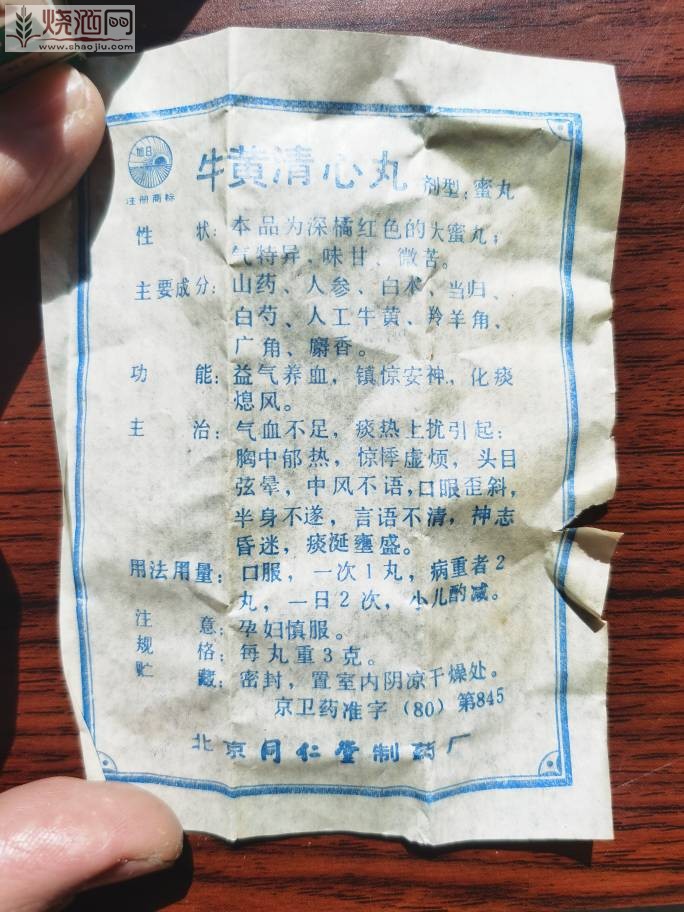 烧酒网
www.shaojiu.com
旭日
注册商标
牛黄清心丸 剂型:蜜丸
性 状:本品为深橘红色的大蜜丸;
气特异、味甘、微苦。
主要成分:山药、人参、白术、当归、
白芍、人工牛黄、羚羊角、
广角、麝香。
功 能:益气养血,镇惊安神,化痰
熄风。
主 治:气血不足,痰热上扰引起:
胸中郁热,惊悸虚烦,头目
弦晕,中风不语,口眼歪斜,
半身不遂,言语不清,神志
昏迷,痰涎壅盛。
用法用量:口服,一次1丸,病重者2
丸,一日2次,小儿酌减。
注 意:孕妇慎服。
规 格:每丸重3克。
贮 藏:密封,置室内阴凉干燥处。
京卫药准字(80)第845
北京同仁堂制药厂